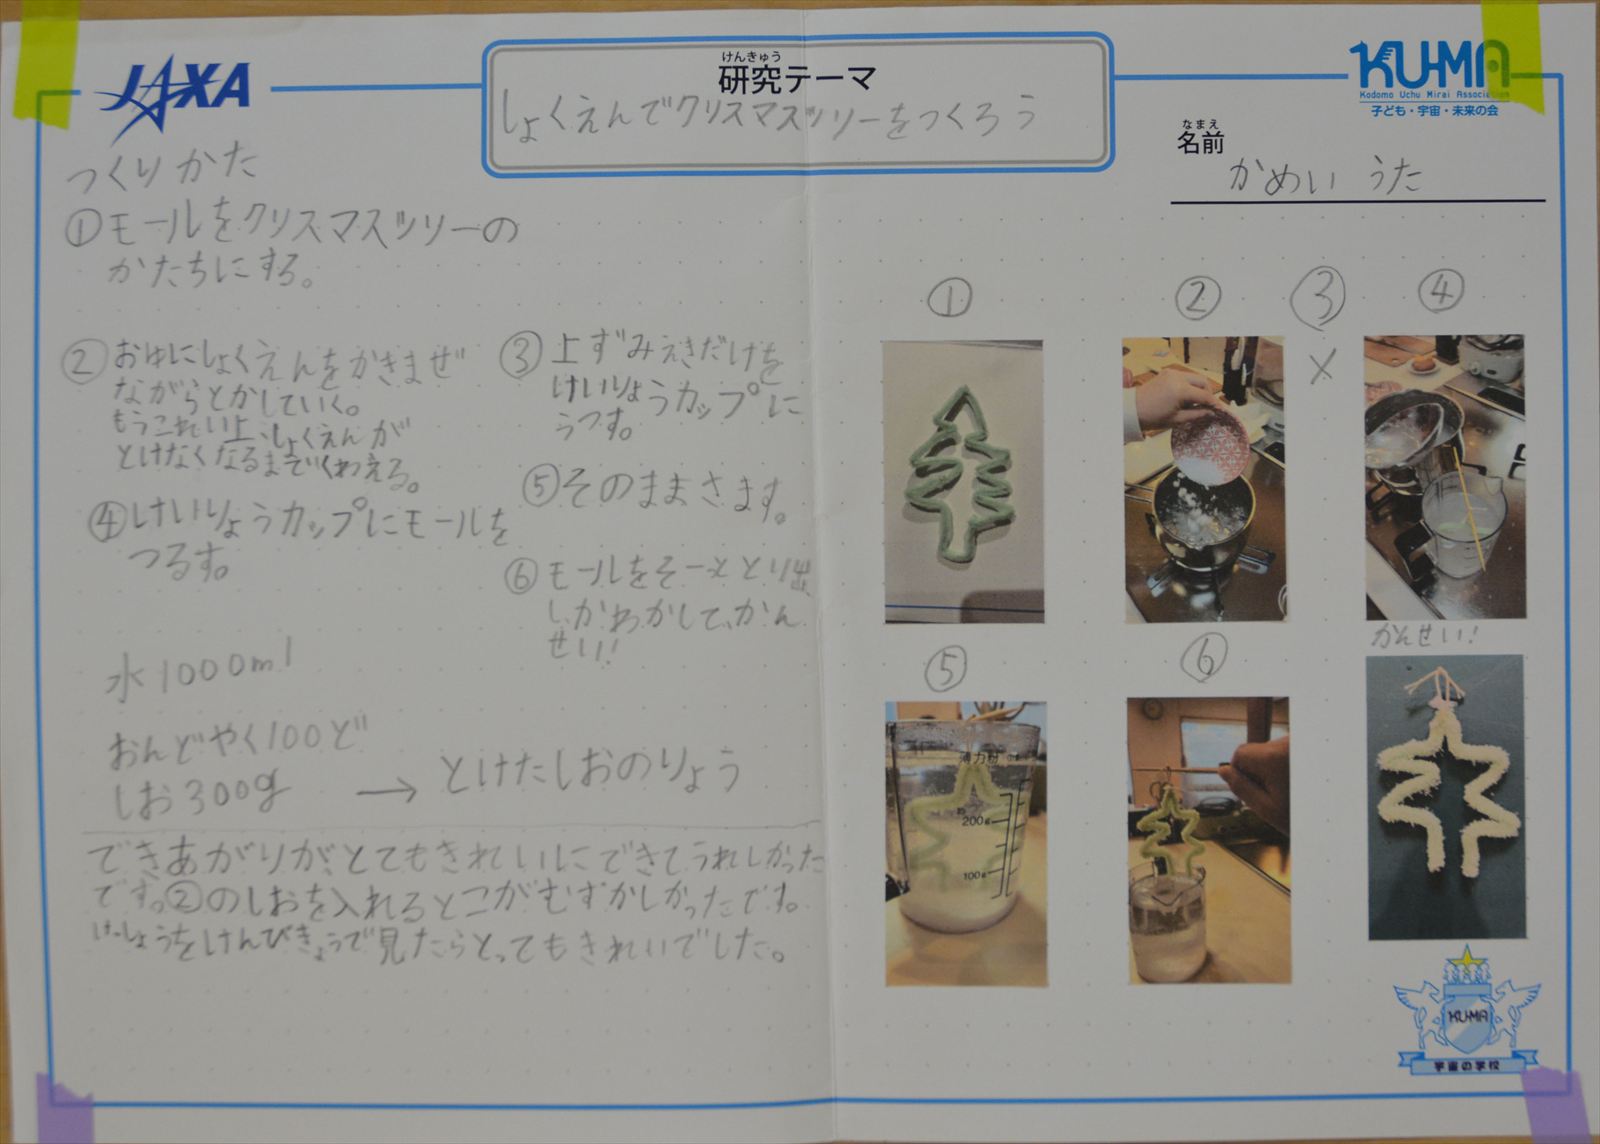 JAXA
けんきゅう
研究テーマ
しょくえんでクリスマスツリーをつくろう
KU-MA
Kodomo Uchu Mirai Association
子ども・宇宙・未来の会
なまえ
名前
かめい うた
つくりかた
①モールをクリスマスツリーの
かたちにする。
②おゆにしょくえんをかきまぜ
ながらとかしていく。
もうこれい上、しょくえんが
とけなくなるまでくわえる。
③上ずみえきだけを
けいりょうカップに
うつす。
④けいりょうカップにモールを
つるす。
⑤そのままさます。
⑥モールをそーっととり出
しかわかして、かん
せい!
水1000ml
おんどやく100ど
しお300g → とけたしおのりょう
できあがりがとてもきれいにできてうれしかった
です。②のしおを入れるとこがむずかしかったです。
けっしょうをけんびきょうで見たらとってもきれいでした。
① ② ③ ④
×
⑤ ⑥ かんせい!
薄力粉
約
200g
100g
KU-MA
宇宙の学校